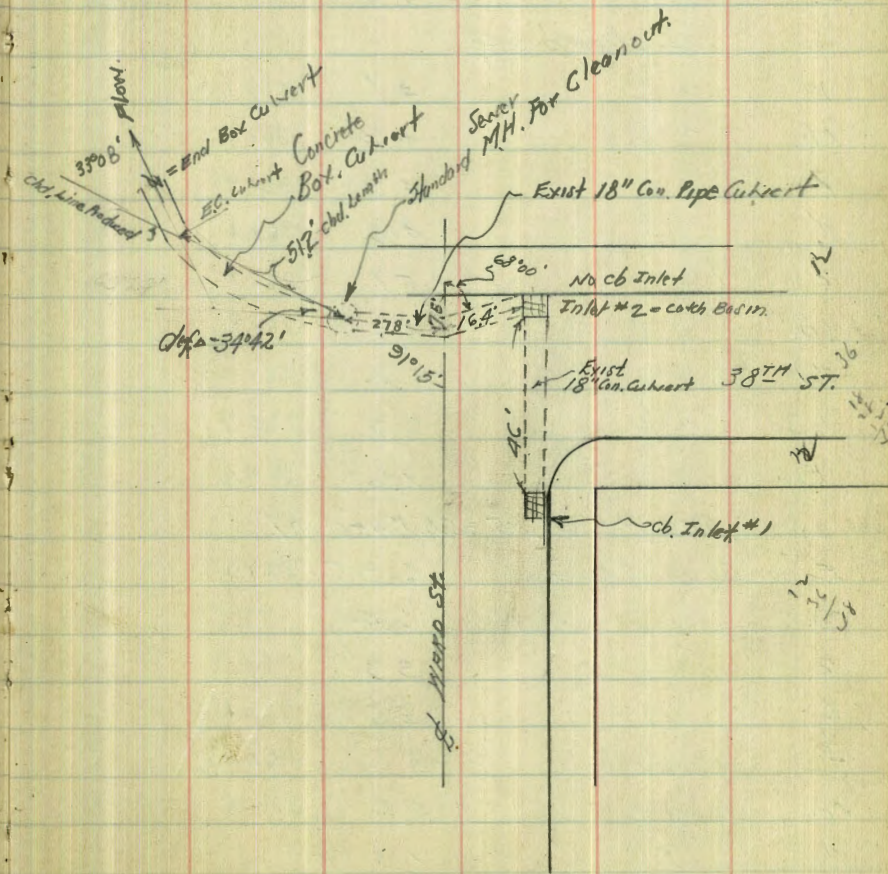 Flow.
33°08'
= End Box Culvert
Chd. Line Produced
E.C. Culvert
Concrete
Box. Culvert
51.2' chd. Length
Standard Sewer
M.H. For Cleanout.
Exist 18" Con. Pipe Culvert
68°00'
No cb Inlet
Inlet #2 = catch Basin.
27.8'
7.5'
16.4'
91°15'
34°42'
Exist
18" Con. Culvert
38TH ST.
46'
cb. Inlet #1
℄ WARD ST.
12
36
12
12
36/58